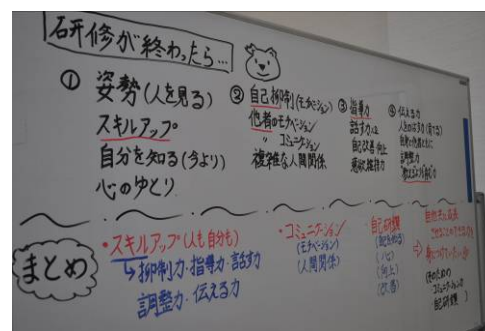 研修が終わったら…
① 姿勢(人を見る)
スキルアップ
自分を知る(今より)
心のゆとり
② 自己抑制(モチベーション)
他者のモチベーション
〃 コミュニケーション
複雑な人間関係
③ 指導力
話す力
自己改善・向上
④ 伝える力
調整力
まとめ
・スキルアップ(人も自分も)
↳抑制力・指導力・話す力
調整力・伝える力
・コミュニケーション
(モチベーション)
(人間関係)
・自己研鑽
(心)
(向上)
(改善)
⇒
(そのための
コミュニケーション
自己研鑽)